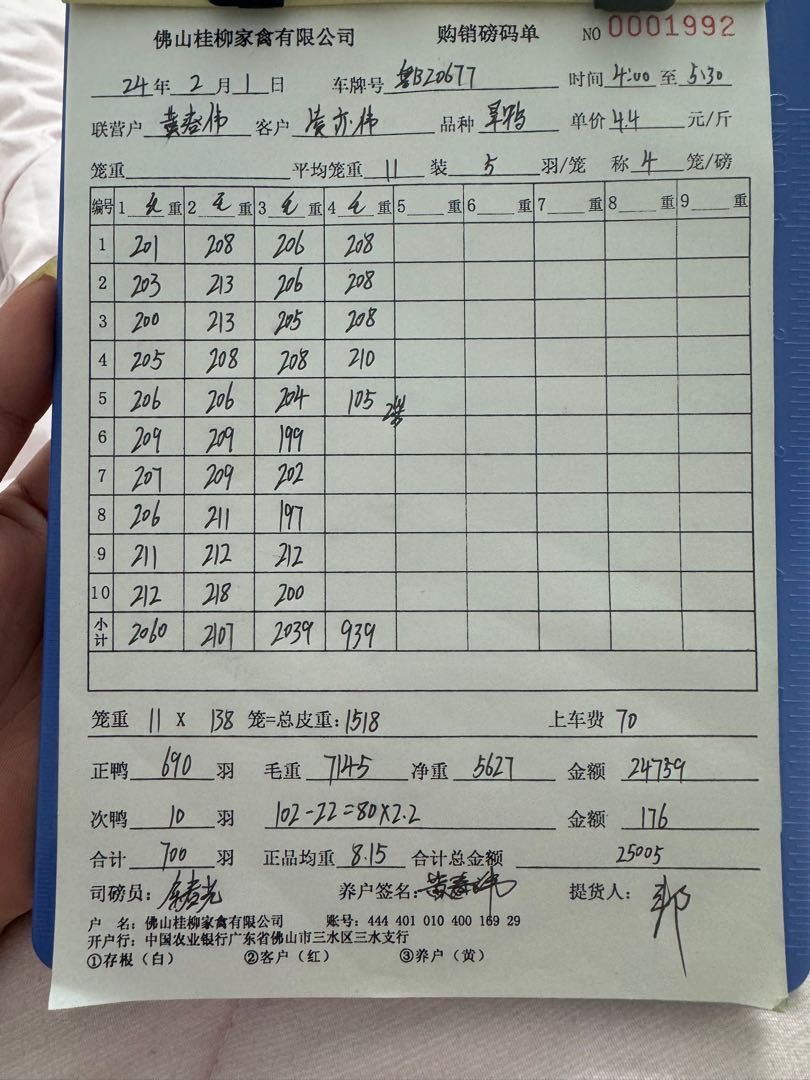 佛山桂柳家禽有限公司 购销磅码单 NO 0001992
24 年 2 月 1 日 车牌号 粤B20677 时间 4:00 至 5:30
联营户 黄春伟 客户 凌亦伟 品种 旱鸭 单价 4.4 元/斤
笼重 平均笼重 11 装 5 羽/笼 称 4 笼/磅
编号 1 毛 重 2 毛 重 3 毛 重 4 毛 重 5 重 6 重 7 重 8 重 9 重
1 201 208 206 208
2 203 213 206 208
3 200 213 205 208
4 205 208 208 210
5 206 206 204 105 2笼
6 209 209 199
7 207 209 202
8 206 211 197
9 211 212 212
10 212 218 200
小计 2060 2107 2039 939
笼重 11 X 138 笼=总皮重: 1518 上车费 70
正鸭 690 羽 毛重 7145 净重 5627 金额 24759
次鸭 10 羽 102-22=80×2.2 金额 176
合计 700 羽 正品均重 8.15 合计总金额 25005
司磅员: 养户签名: 黄春伟 提货人: 邓
户 名: 佛山桂柳家禽有限公司 账号: 444 401 010 400 169 29
开户行: 中国农业银行广东省佛山市三水区三水支行
①存根(白) ②客户(红) ③养户(黄)